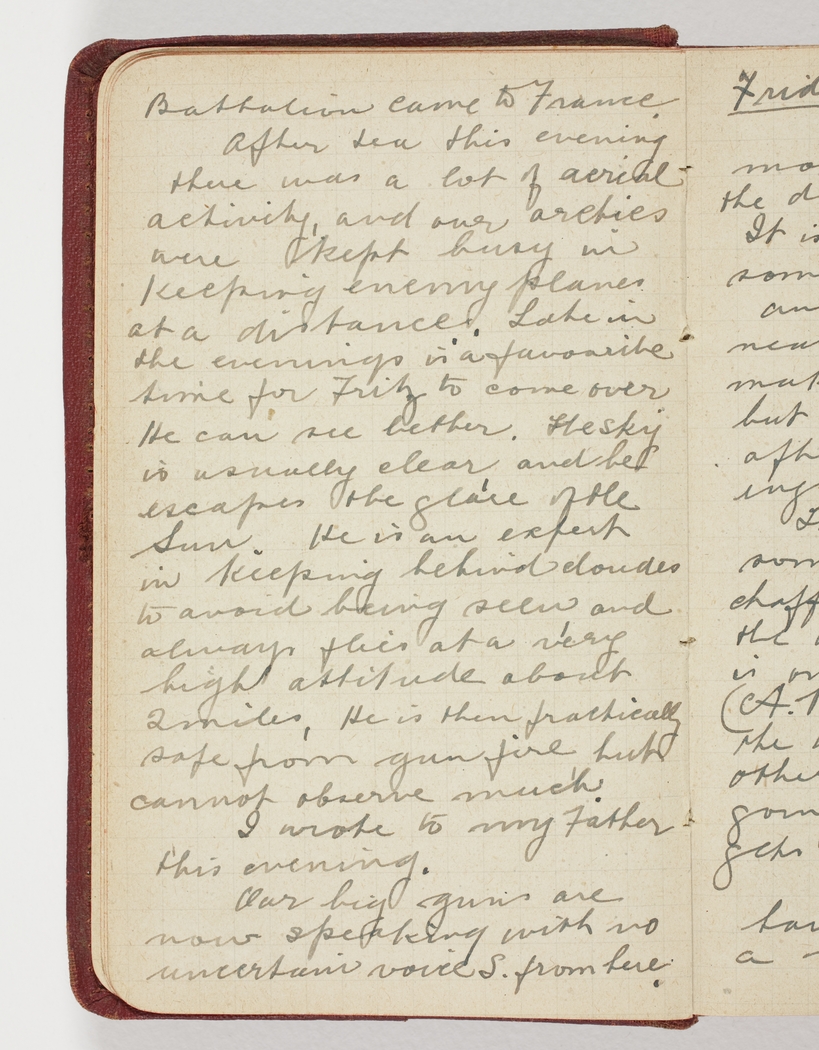 Battalion came to France
After tea this evening
there was a lot of aerial
activity, and our archies
were kept busy in
keeping enemy planes
at a distance. Late in
the evenings is a favourite
time for Fritz to come over
He can see better. The sky
is usually clear and he
escapes the glare of the
Sun. He is an expert
in keeping behind cloudes
to avoid being seen and
always flies at a very
high attitude about
2 miles, He is then practically
safe from gun fire but
cannot observe much.
I wrote to my Father
this evening.
Our big guns are
now speaking with no
uncertain voices. from here
Frid
mo
the d
It is
som
an
nea
mak
but
aft
ing
som
chaff
the
is or
(A.
the
other
goin
gets
a